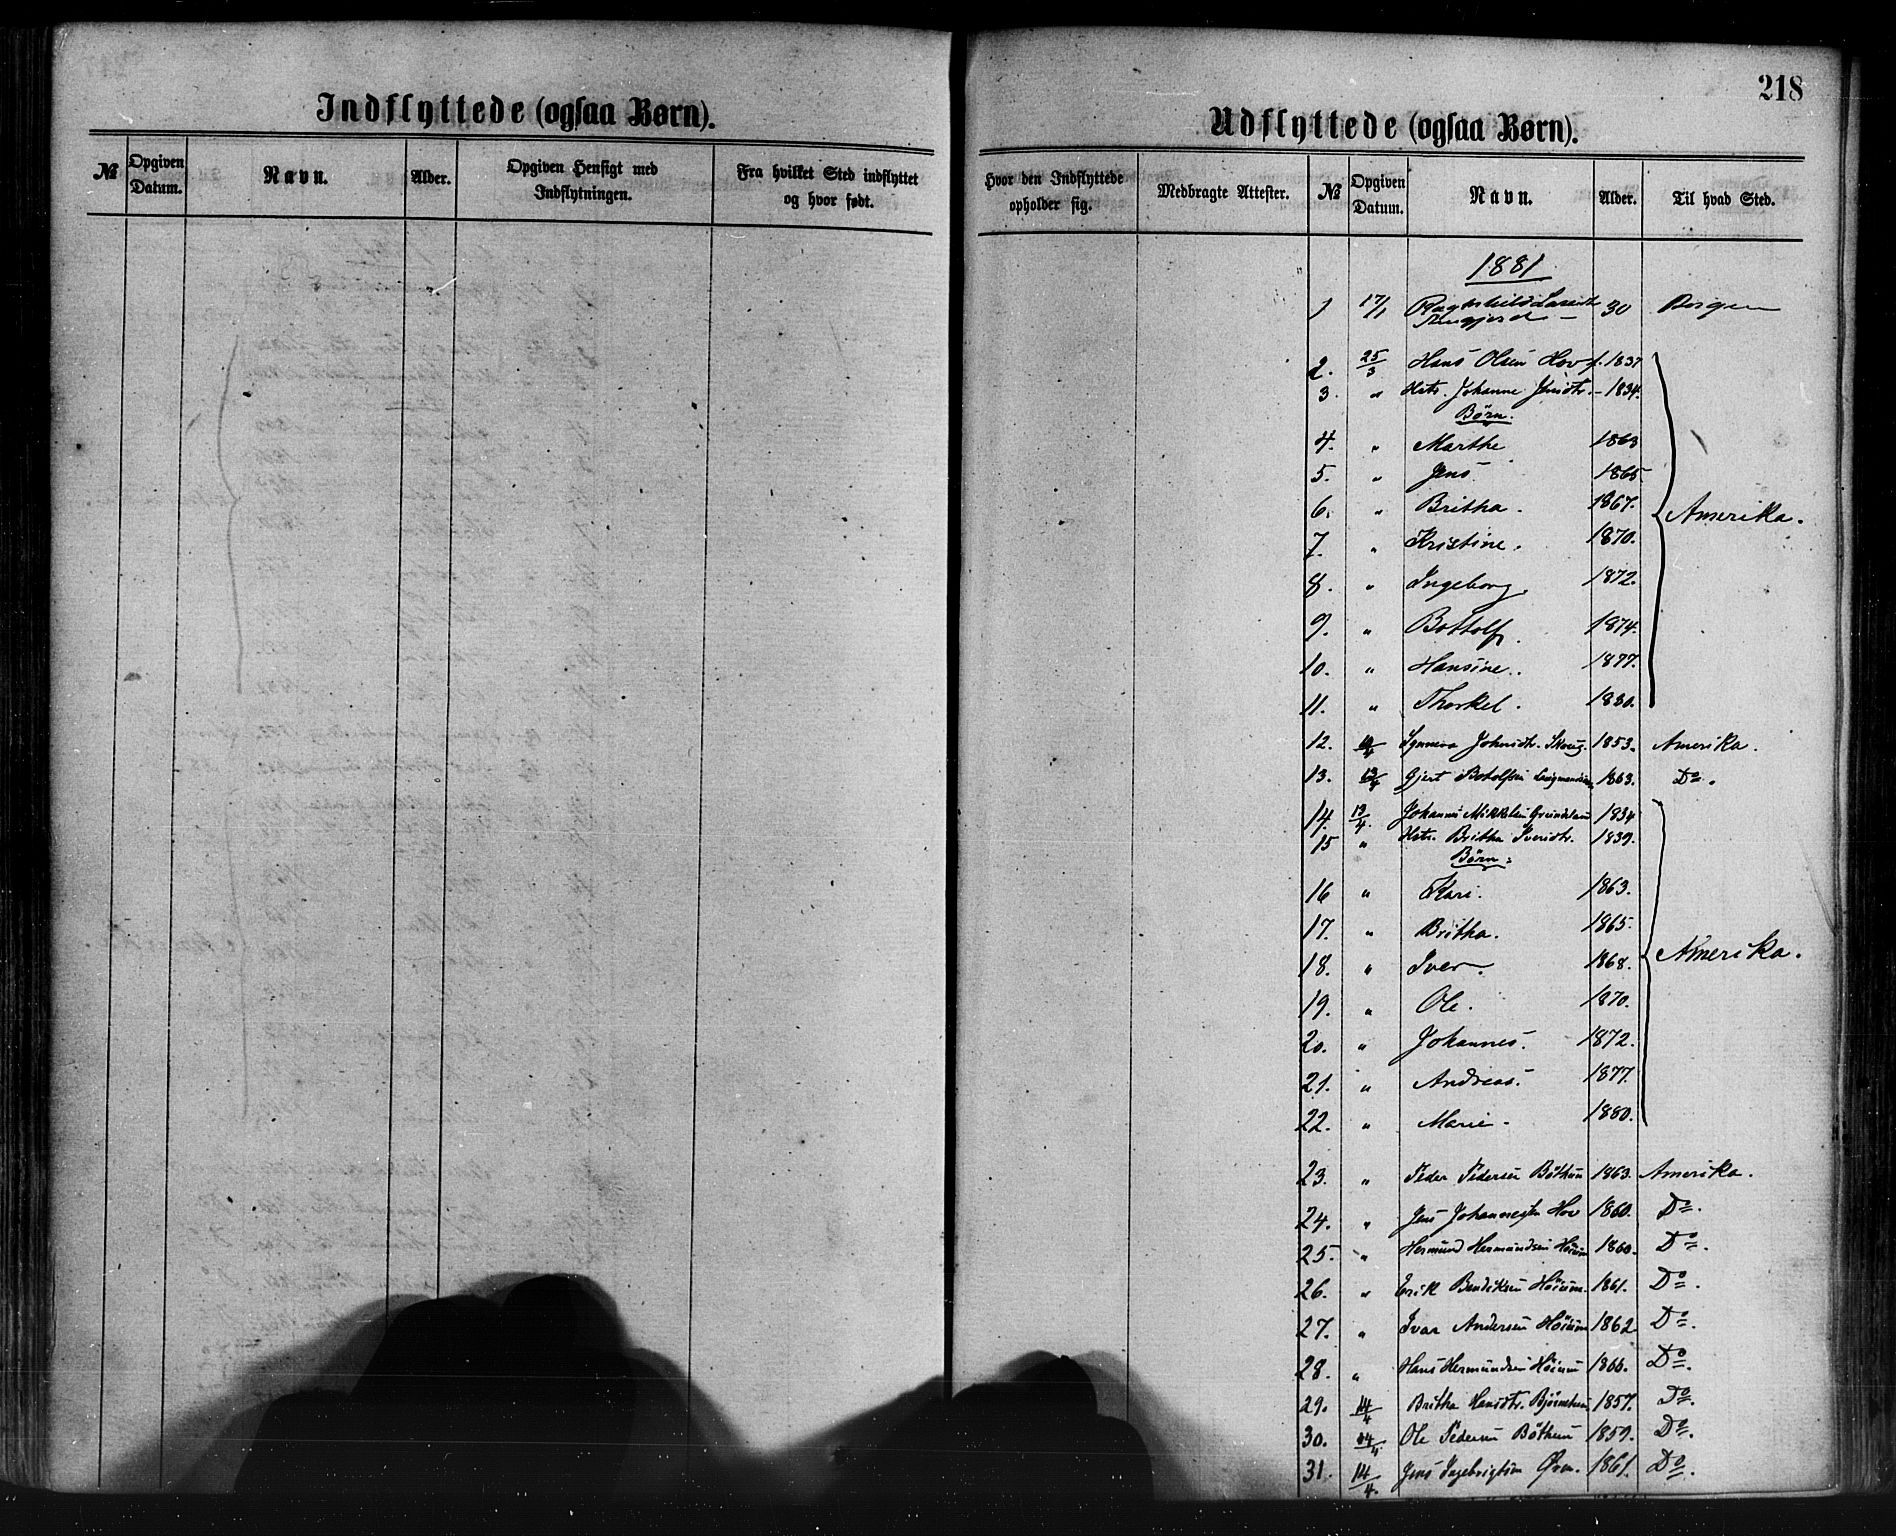 218
Indflyttede (ogsaa Børn).
№ Opgiven Datum. Navn. Alder. Opgiven Hensigt med Indflytningen. Fra hvilket Sted indflyttet og hvor født.
Udflyttede (ogsaa Børn).
Hvor den Indflyttede opholder sig. Medbragte Attester. № Opgiven Datum. Navn. Alder. Til hvad Sted.
1881
1 17/1 Ragnhild 30 Bergen
2. 25/3 Hans Olsen Hov f. 1837
3. " Hstr. Johanne Jensdtr. - 1834.
Børn.
4. " Marthe 1863
5. " Jens 1865
6. " Britha. 1867.
7. " Kristine. 1870.
Amerika.
8. " Ingeborg. 1872.
9. " Bottolf. 1874.
10. " Hansine. 1877.
11. " Thorkel. 1880.
12. Synneva Johnsdtr. 1853. Amerika.
13. 13/4 Gjert Botolfsen 1863. Do.
14. 13/4. Johannes Mikkelsen 1834
15 " Hstr. Britha Iversdtr. 1839.
Børn:
16 " Kari. 1863.
17. " Britha. 1865.
18. " Iver. 1868.
Amerika.
19. " Ole. 1870.
20. " Johannes. 1872.
21. " Andreas. 1877.
22. " Marie. 1880.
23. " Peder Pedersen Bøthun 1863. Amerika.
24. " Jens Johannessen Hov 1860. Do.
25. " Hermund Hermundsen Høium 1860. Do.
26. " Erik Bendiksen Høium. 1861. Do.
27. " Ivar Andersen Høium 1862 Do.
28. " Hans Hermundsen Høium 1866. Do.
29. 14/4 Britha Hansdtr. 1857. Do.
30. 14/4 Ole Pedersen Bøthun 1859. Do.
31. 14/4. Jens Ingebrigtsen 1861. Do.